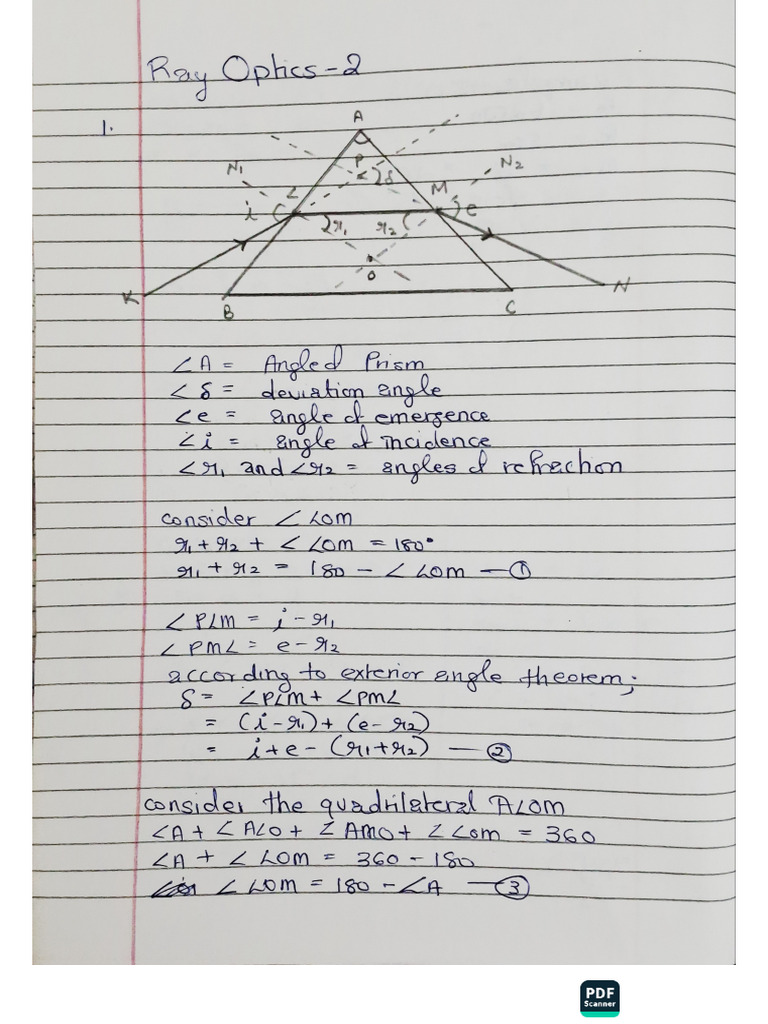 Ray Optics-2
1.
A
P
δ
N₁
N₂
L
M
i
e
r₁
r₂
O
K
N
B
C
∠A = Angle of Prism
∠δ = deviation angle
∠e = angle of emergence
∠i = angle of incidence
∠r₁ and ∠r₂ = angles of refraction
consider ∠LOM
r₁ + r₂ + ∠LOM = 180°
r₁ + r₂ = 180 - ∠LOM — ①
∠PLM = i - r₁
∠PML = e - r₂
according to exterior angle theorem;
δ = ∠PLM + ∠PML
= (i - r₁) + (e - r₂)
= i + e - (r₁ + r₂) — ②
consider the quadrilateral ALOM
∠A + ∠ALO + ∠AMO + ∠LOM = 360
∠A + ∠LOM = 360 - 180
∠LOM = 180 - ∠A — ③
PDF
Scanner